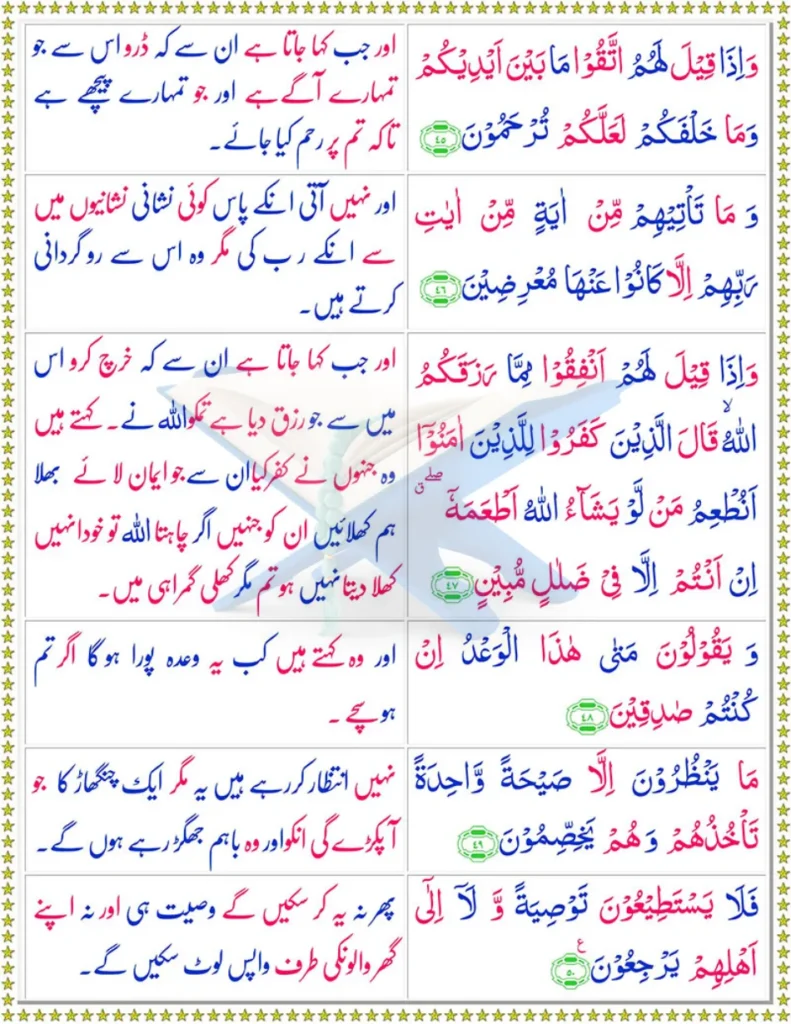 وَاِذَا قِيْلَ لَهُمُ اتَّقُوْا مَا بَيْنَ اَيْدِيْكُمْ
وَمَا خَلْفَكُمْ لَعَلَّكُمْ تُرْحَمُوْنَ ٤٥
اور جب کہا جاتا ہے ان سے کہ ڈرو اس سے جو
تمہارے آگے ہے اور جو تمہارے پیچھے ہے
تاکہ تم پر رحم کیا جائے۔
وَ مَا تَاْتِيْهِمْ مِّنْ اٰيَةٍ مِّنْ اٰيٰتِ
رَبِّهِمْ اِلَّا كَانُوْا عَنْهَا مُعْرِضِيْنَ ٤٦
اور نہیں آتی انکے پاس کوئی نشانی نشانیوں میں
سے انکے رب کی مگر وہ اس سے روگردانی
کرتے ہیں۔
وَاِذَا قِيْلَ لَهُمْ اَنْفِقُوْا مِمَّا رَزَقَكُمُ
اللّٰهُ ۙ قَالَ الَّذِيْنَ كَفَرُوْا لِلَّذِيْنَ اٰمَنُوْۤا
اَنُطْعِمُ مَنْ لَّوْ يَشَآءُ اللّٰهُ اَطْعَمَهٗۤ ۖ ق
اِنْ اَنْتُمْ اِلَّا فِىْ ضَلٰلٍ مُّبِيْنٍ ٤٧
اور جب کہا جاتا ہے ان سے کہ خرچ کرو اس
میں سے جو رزق دیا ہے تمکو اللہ نے۔ کہتے ہیں
وہ جنہوں نے کفر کیا ان سے جو ایمان لائے بھلا
ہم کھلائیں ان کو جنہیں اگر چاہتا اللہ تو خود انہیں
کھلا دیتا نہیں ہو تم مگر کھلی گمراہی میں۔
وَ يَقُوْلُوْنَ مَتٰى هٰذَا الْوَعْدُ اِنْ
كُنْتُمْ صٰدِقِيْنَ ٤٨
اور وہ کہتے ہیں کب یہ وعدہ پورا ہو گا اگر تم
ہو سچے ۔
مَا يَنْظُرُوْنَ اِلَّا صَيْحَةً وَّاحِدَةً
تَاْخُذُهُمْ وَهُمْ يَخِصِّمُوْنَ ٤٩
نہیں انتظار کر رہے ہیں یہ مگر ایک چنگھاڑ کا جو
آ پکڑے گی انکو اور وہ باہم جھگڑ رہے ہوں گے۔
فَلَا يَسْتَطِيْعُوْنَ تَوْصِيَةً وَّ لَاۤ اِلٰٓى
اَهْلِهِمْ يَرْجِعُوْنَ ع ٥٠
پھر نہ یہ کر سکیں گے وصیت ہی اور نہ اپنے
گھر والونکی طرف واپس لوٹ سکیں گے۔